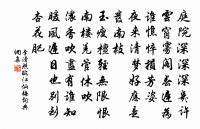 庭院深深深幾許
雲窗霧閣春遲為
誰憔悴損芳姿
夜來清夢好應是
發南枝
玉瘦檀輕無限恨
南樓羌管休吹
濃香吹盡有誰知
暖風遲日也別到
杏花肥
李清照臨江仙梅句典
網集